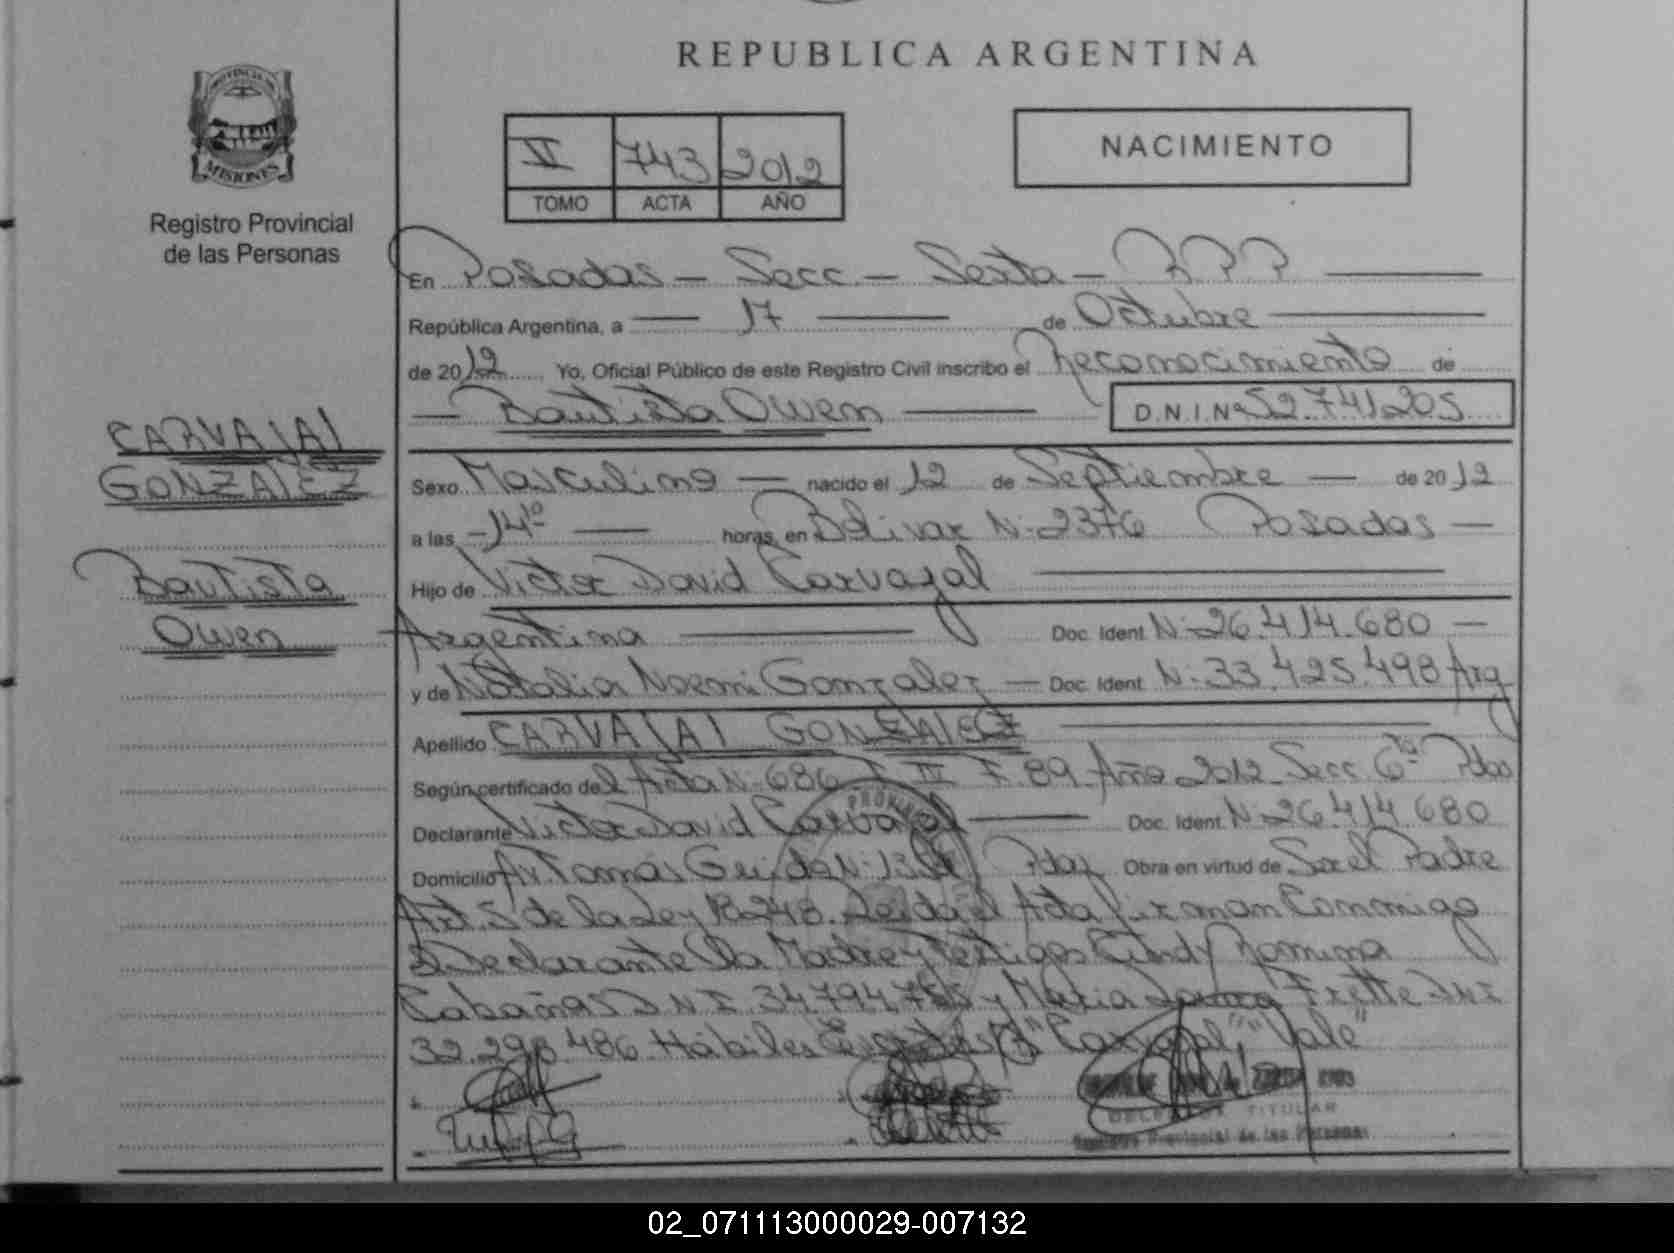 REPUBLICA ARGENTINA
PROVINCIA DE
MISIONES
Registro Provincial
de las Personas
VI 743 2012
TOMO ACTA AÑO
NACIMIENTO
En Posadas - Secc - Sexta - RPP
República Argentina, a 17 de Octubre
de 2012 Yo, Oficial Público de este Registro Civil inscribo el Reconocimiento de
Bautista Owen D.N.I.Nº 52.741.205
CARVAJAL
GONZALEZ
Bautista
Owen
Sexo Masculino nacido el 12 de Septiembre de 2012
a las 14 horas, en Bolivar N: 2376 Posadas
Hijo de Victor David Carvajal
Argentina Doc. Ident. N: 26.414.680
y de Natalia Noemi Gonzalez Doc. Ident. N: 33.425.498 Arg
Apellido CARVAJAL GONZALEZ
Según certificado del Acta N: 686 T III F. 89 Año 2012 Secc 6ta Pdas
Declarante Victor David Carvajal Doc. Ident. N: 26.414.680
Domicilio Av. Tomás Guido N: Pdas Obra en virtud de Ser el Padre
Art. 5 de la Ley 18248. Leida el Acta firman Conmigo
el Declarante la Madre y Testigos Cindy Romina
Cabañas D.N.I. 34.794. y Maria Frette DNI
32.298.486 Hábiles "Carvajal" "Vale"
TITULAR
Registro Provincial de las Personas
02_071113000029-007132